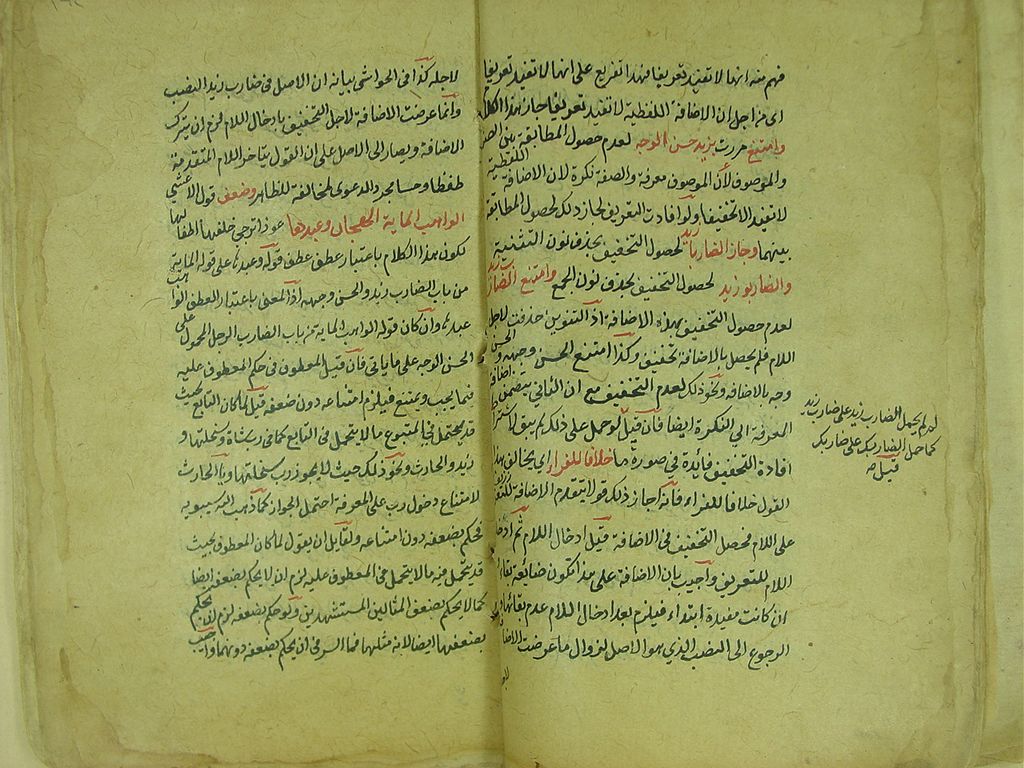 فهم منه انها لا تفيد تعريفا فهذا تفريع على انها لا تفيد تعريفا
اى من اجل ان الاضافة اللفظية لا تفيد تعريفا جاز بهذا
وامتنع مررت بزيد حسن الوجه لعدم حصول المطابقة بين
والموصوف لأن الموصوف معرفة والصفة نكرة لان الاضافة اللفظية
لا تفيد الا تخفيفا ولو افادت التعريف لجاز ذلك لحصول المطابقة
بينهما وجاز الضاربا زيد لحصول التخفيف بحذف نون التثنية
والضاربو زيد لحصول التخفيف بحذف نون الجمع وامتنع الضارب زيد
لعدم حصول التخفيف بهذه الاضافة اذ التنوين حذفت لاجل
اللام فلم يحصل بالاضافة تخفيف وكذا امتنع الحسن وجهه والحسن
وجه بالاضافة ونحو ذلك لعدم التخفيف مع ان الثانى يتضمن اضافة
المعرفة الى النكرة ايضا فان قيل لو حمل على ذلك لم يبق
افادة التخفيف فائدة فى صورة ما خلافا للفراء اى يخالف هذا
القول خلافا للفراء فانه اجاز ذلك قولا بتقدم الاضافة
على اللام فحصل التخفيف فى الاضافة قبل ادخال اللام ثم
اللام للتعريف واجيب بان الاضافة على هذا تكون ضائعة بقاء
ان كانت مفيدة ابتداء فيلزم بعد ادخال اللام عدم بقائها
الرجوع الى النصب الذى هو الاصل لزوال ما عرضت
لم لم يحمل الضارب زيد على ضارب زيد
كما حمل الضاربك على ضاربك
قيل
لاجله كذا فى الحواشى بيانه ان الاصل فى ضارب زيد النصب
وانما عرضت الاضافة لاجل التخفيف بادخال اللام لزم ان يترك
الاضافة ويصار الى الاصل على ان القول بتأخر اللام المتقدمة
لفظا وحسا مجرد الدعوى لمخالفة للظاهر وضعف قول الاعشى
الواهب الماية الهجان وعبدها عوذا تزجى خلفها اطفالها
لكون هذا الكلام باعتبار عطف قوله وعبدها على قوله الماية
من باب الضارب زيد والحسن وجهه اذ المعنى باعتبار العطف الواهب
عبدها وان كان قوله الواهب الماية من باب الضارب الرجل المحمول على
الحسن الوجه على ما ياتى فان قيل المعطوف فى حكم المعطوف عليه
فيما يجب ويمتنع فيلزم امتناعه دون ضعفه قيل لما كان التابع بحيث
قد يحتمل فى المتبوع ما لا يتحمل فى التابع كما فى رب شاة وسخلتها و
زيد والحارث ونحو ذلك حيث لا يجوز رب سخلتها ويا الحارث
لامتناع دخول رب على المعرفة احتمل الجواز كما ذهب اليه سيبويه
فحكم بضعفه دون امتناعه ولقايل ان يقول لما كان المعطوف بحيث
قد يتحمل فيه ما لا يتحمل فى المعطوف عليه لزم ان لا يحكم بضعفه ايضا
كما لا يحكم بضعف المثالين المستشهدين ولو حكم بضعفه لزم ان يحكم
بضعفهما ايضا لانه مثلهما فما السر فى ان يحكم بضعفه دونهما واجيب